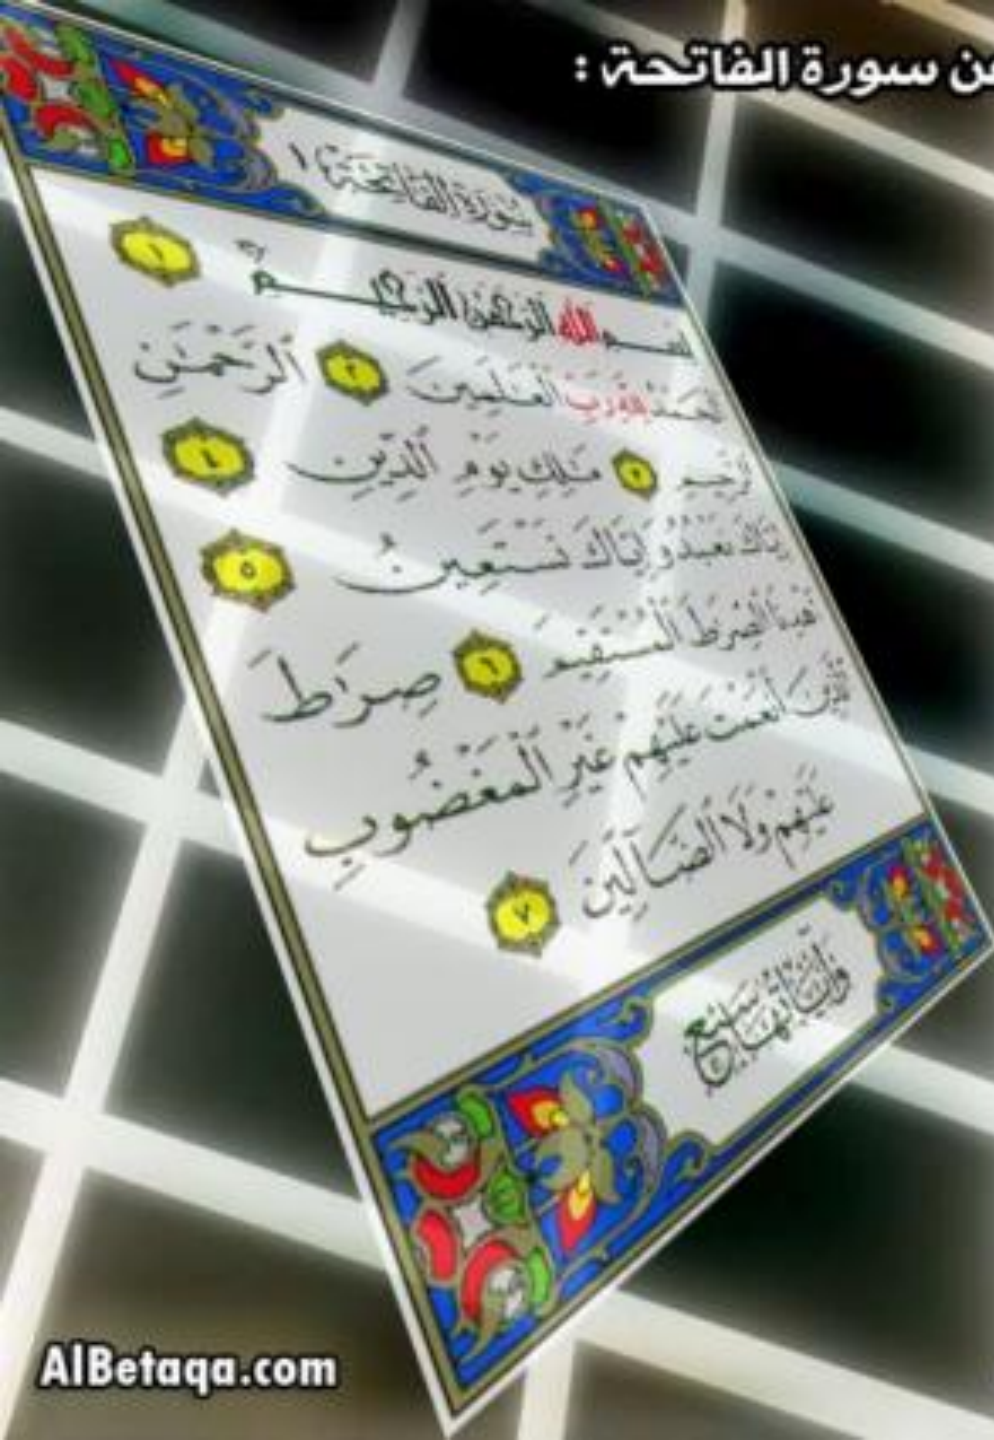 عن سورة الفاتحة :
سُورَةُ الفَاتِحَةِ ١
بسم الله الرحمن الرحيم ١
الحمد لله رب العلمين ٢ الرَّحْمَٰنِ
الرحيم ٣ مَٰلِكِ يَوْمِ الدِّينِ ٤
إِيَّاكَ نَعْبُدُ وَإِيَّاكَ نَسْتَعِينُ ٥
اهْدِنَا الصِّرَٰطَ الْمُسْتَقِيمَ ٦ صِرَٰطَ
الَّذِينَ أَنْعَمْتَ عَلَيْهِمْ غَيْرِ الْمَغْضُوبِ
عَلَيْهِمْ وَلَا الضَّآلِّينَ ٧
وَآيَاتُهَا سَبْعٌ
AlBetaqa.com